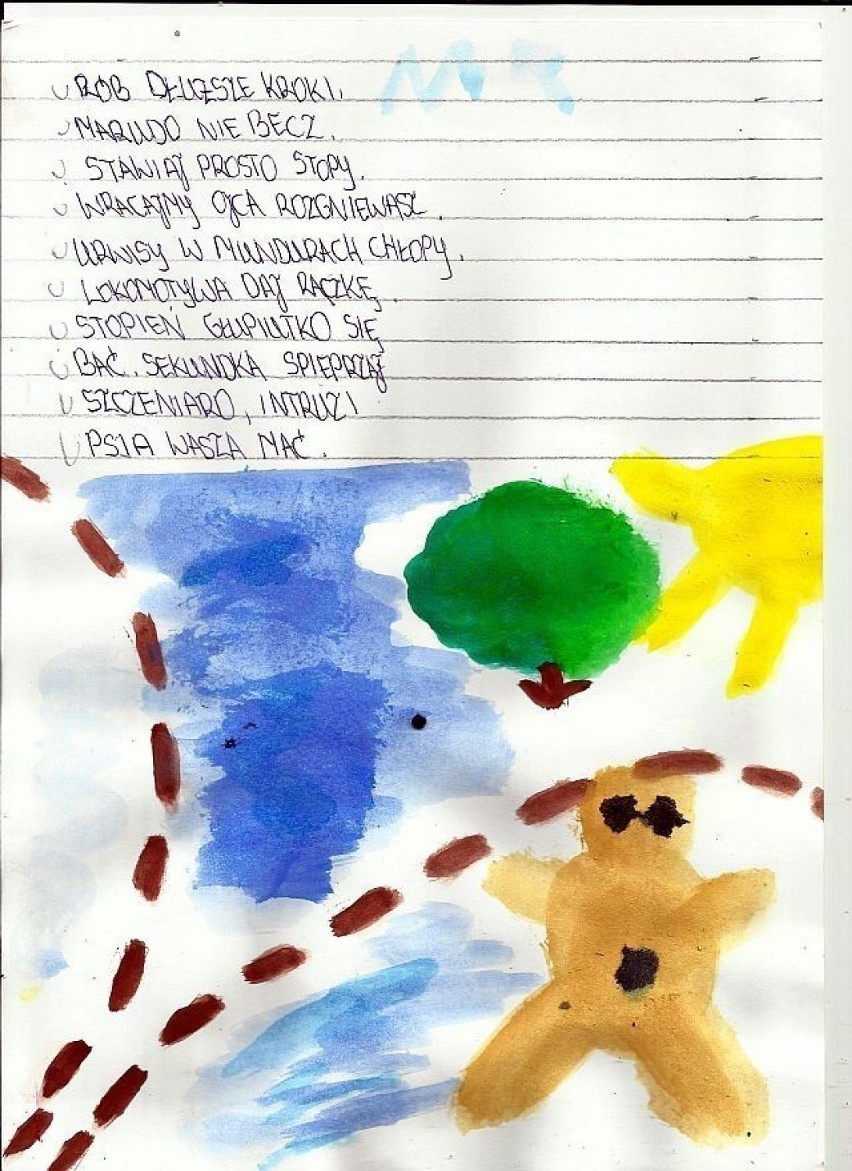 RÓB DŁUŻSZE KROKI.
MARUDO NIE BECZ.
STAWIAJ PROSTO STOPY.
WRACAJMY OJCA ROZGNIEWASZ.
URWISY W MUNDURACH CHŁOPY.
LOKOMOTYWA DAJ RĄCZKĘ.
STOPIEŃ GŁUPIUTKO SIĘ
BAĆ. SEKUNDKA SPIEPRZAJ
SZCZENIARO, INTRUZI
PSIA WASZA MAĆ.